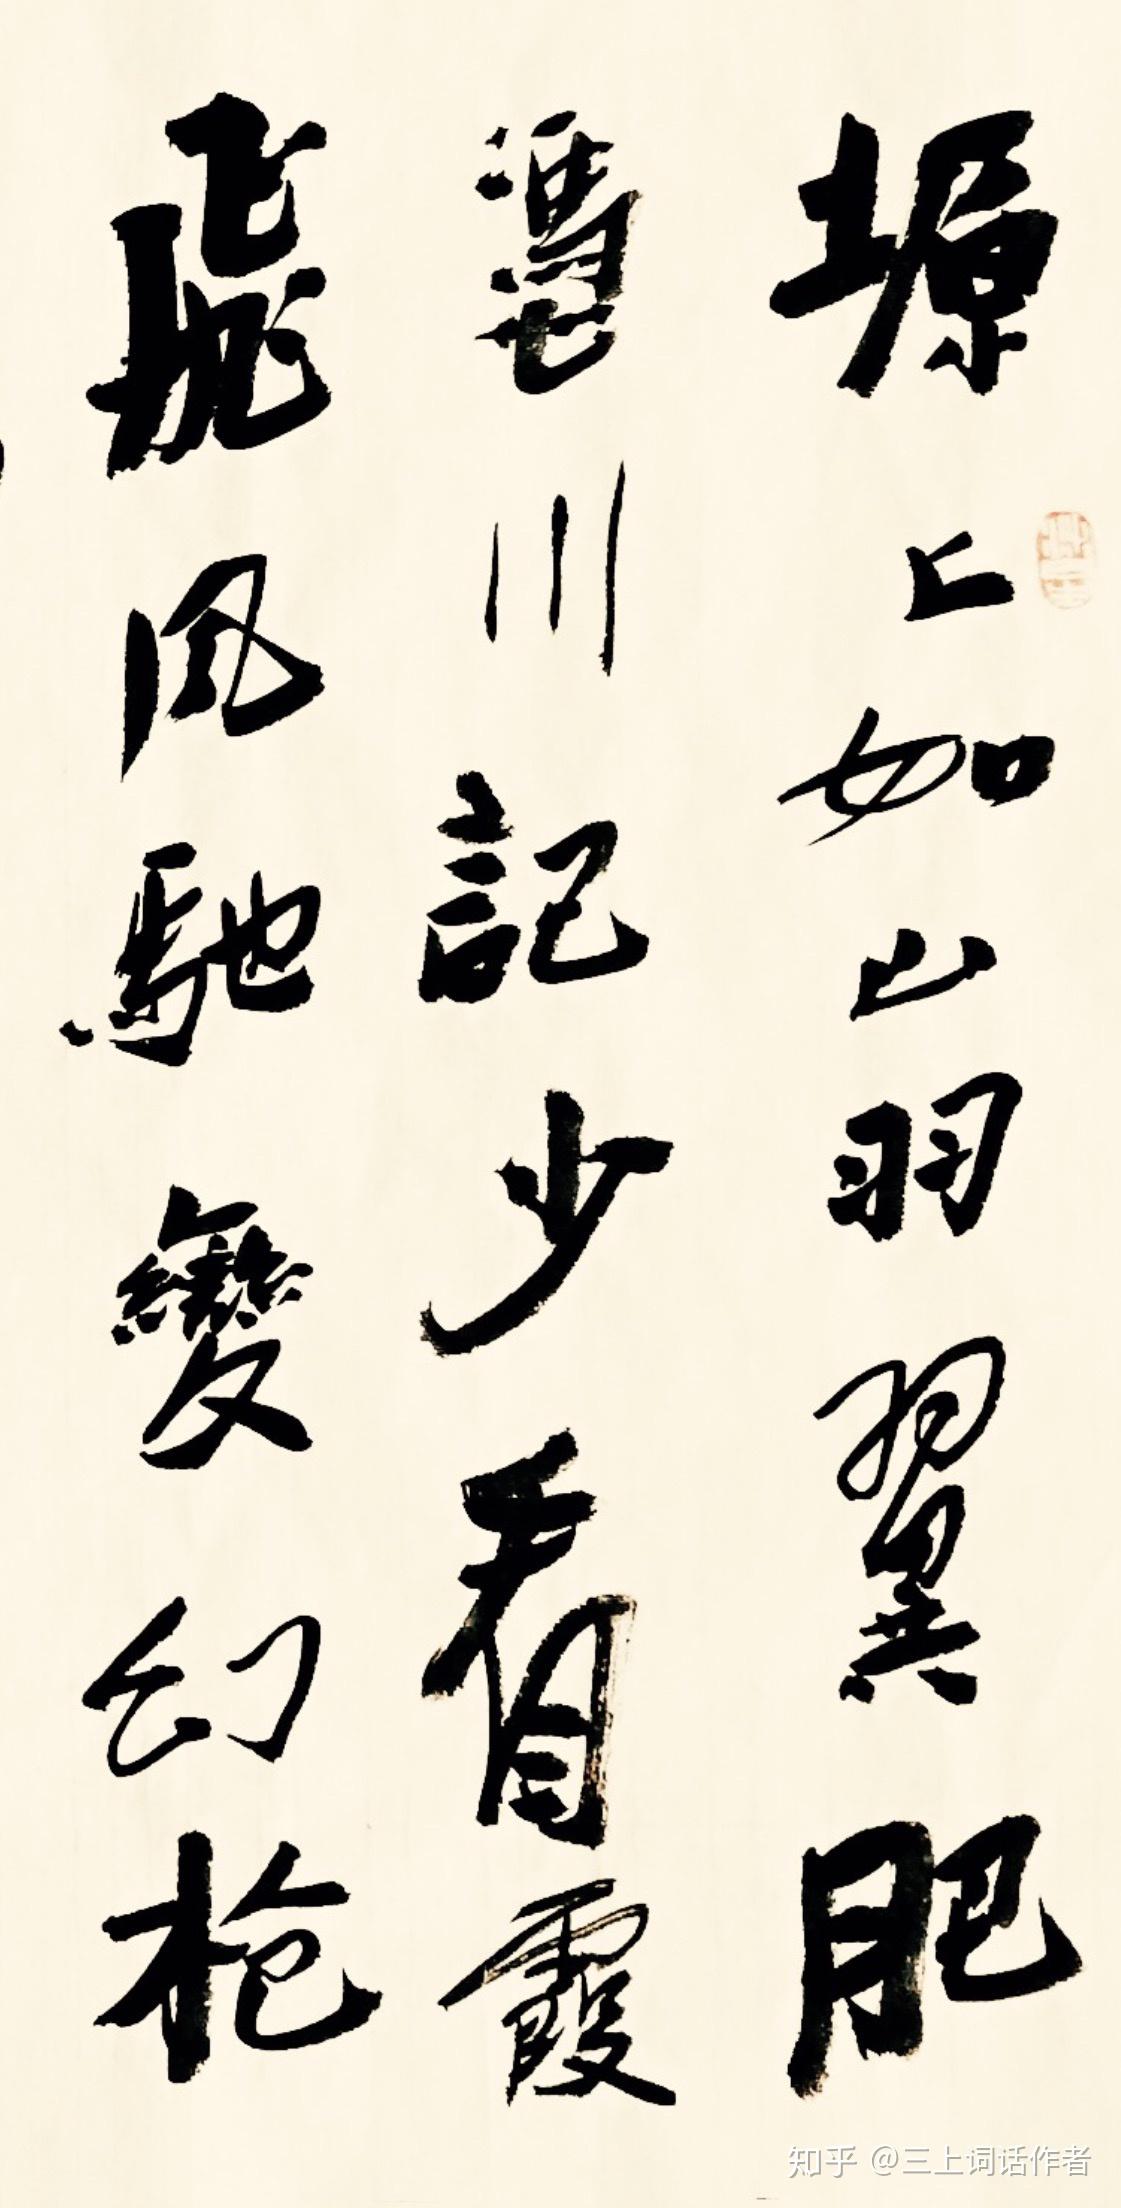 塬上如山羽翼肥
憑川記少看霞
飛風馳變幻枪
知乎 @三上词话作者